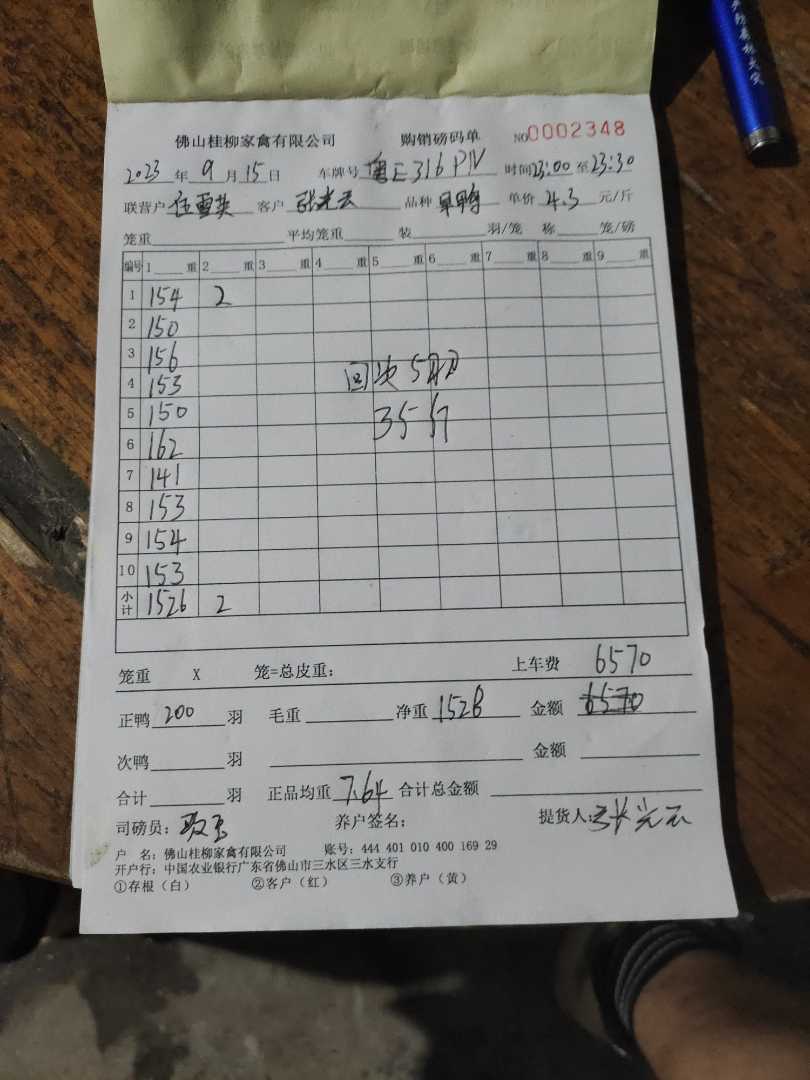 佛山桂柳家禽有限公司 购销磅码单 NO0002348
2023年9月15日 车牌号粤E316PN 时间23:00至23:30
联营户伍雪英 客户张光云 品种草鸭 单价4.3元/斤
笼重 平均笼重 装 羽/笼 称 笼/磅
编号 1 重 2 重 3 重 4 重 5 重 6 重 7 重 8 重 9 重
1 154 2
2 150
3 156
4 153
5 150
6 162
7 141
8 153
9 154
10 153
小计 1526 2
回次5
35
笼重 X 笼=总皮重: 上车费 6570
正鸭200羽 毛重 净重1528 金额6570
次鸭 羽 金额
合计 羽 正品均重7.64 合计总金额
司磅员: 养户签名: 提货人:张光云
户 名:佛山桂柳家禽有限公司 账号:444 401 010 400 169 29
开户行:中国农业银行广东省佛山市三水区三水支行
①存根(白) ②客户(红) ③养户(黄)